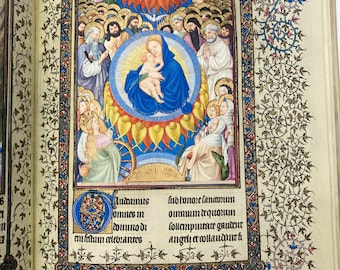 Gaudeamus
omnes in
domino di
em festum celebrantes
sub honore sanctorum
omnium de quorum
sollempnitate gaudent
angeli et collaudant